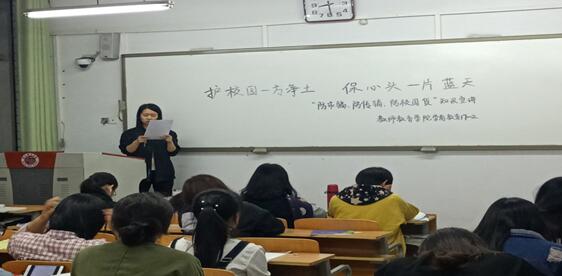 护校园一方净土 保心头一片蓝天
"防诈骗、防传销、防校园贷"知识宣讲
教师教育学院学前教育